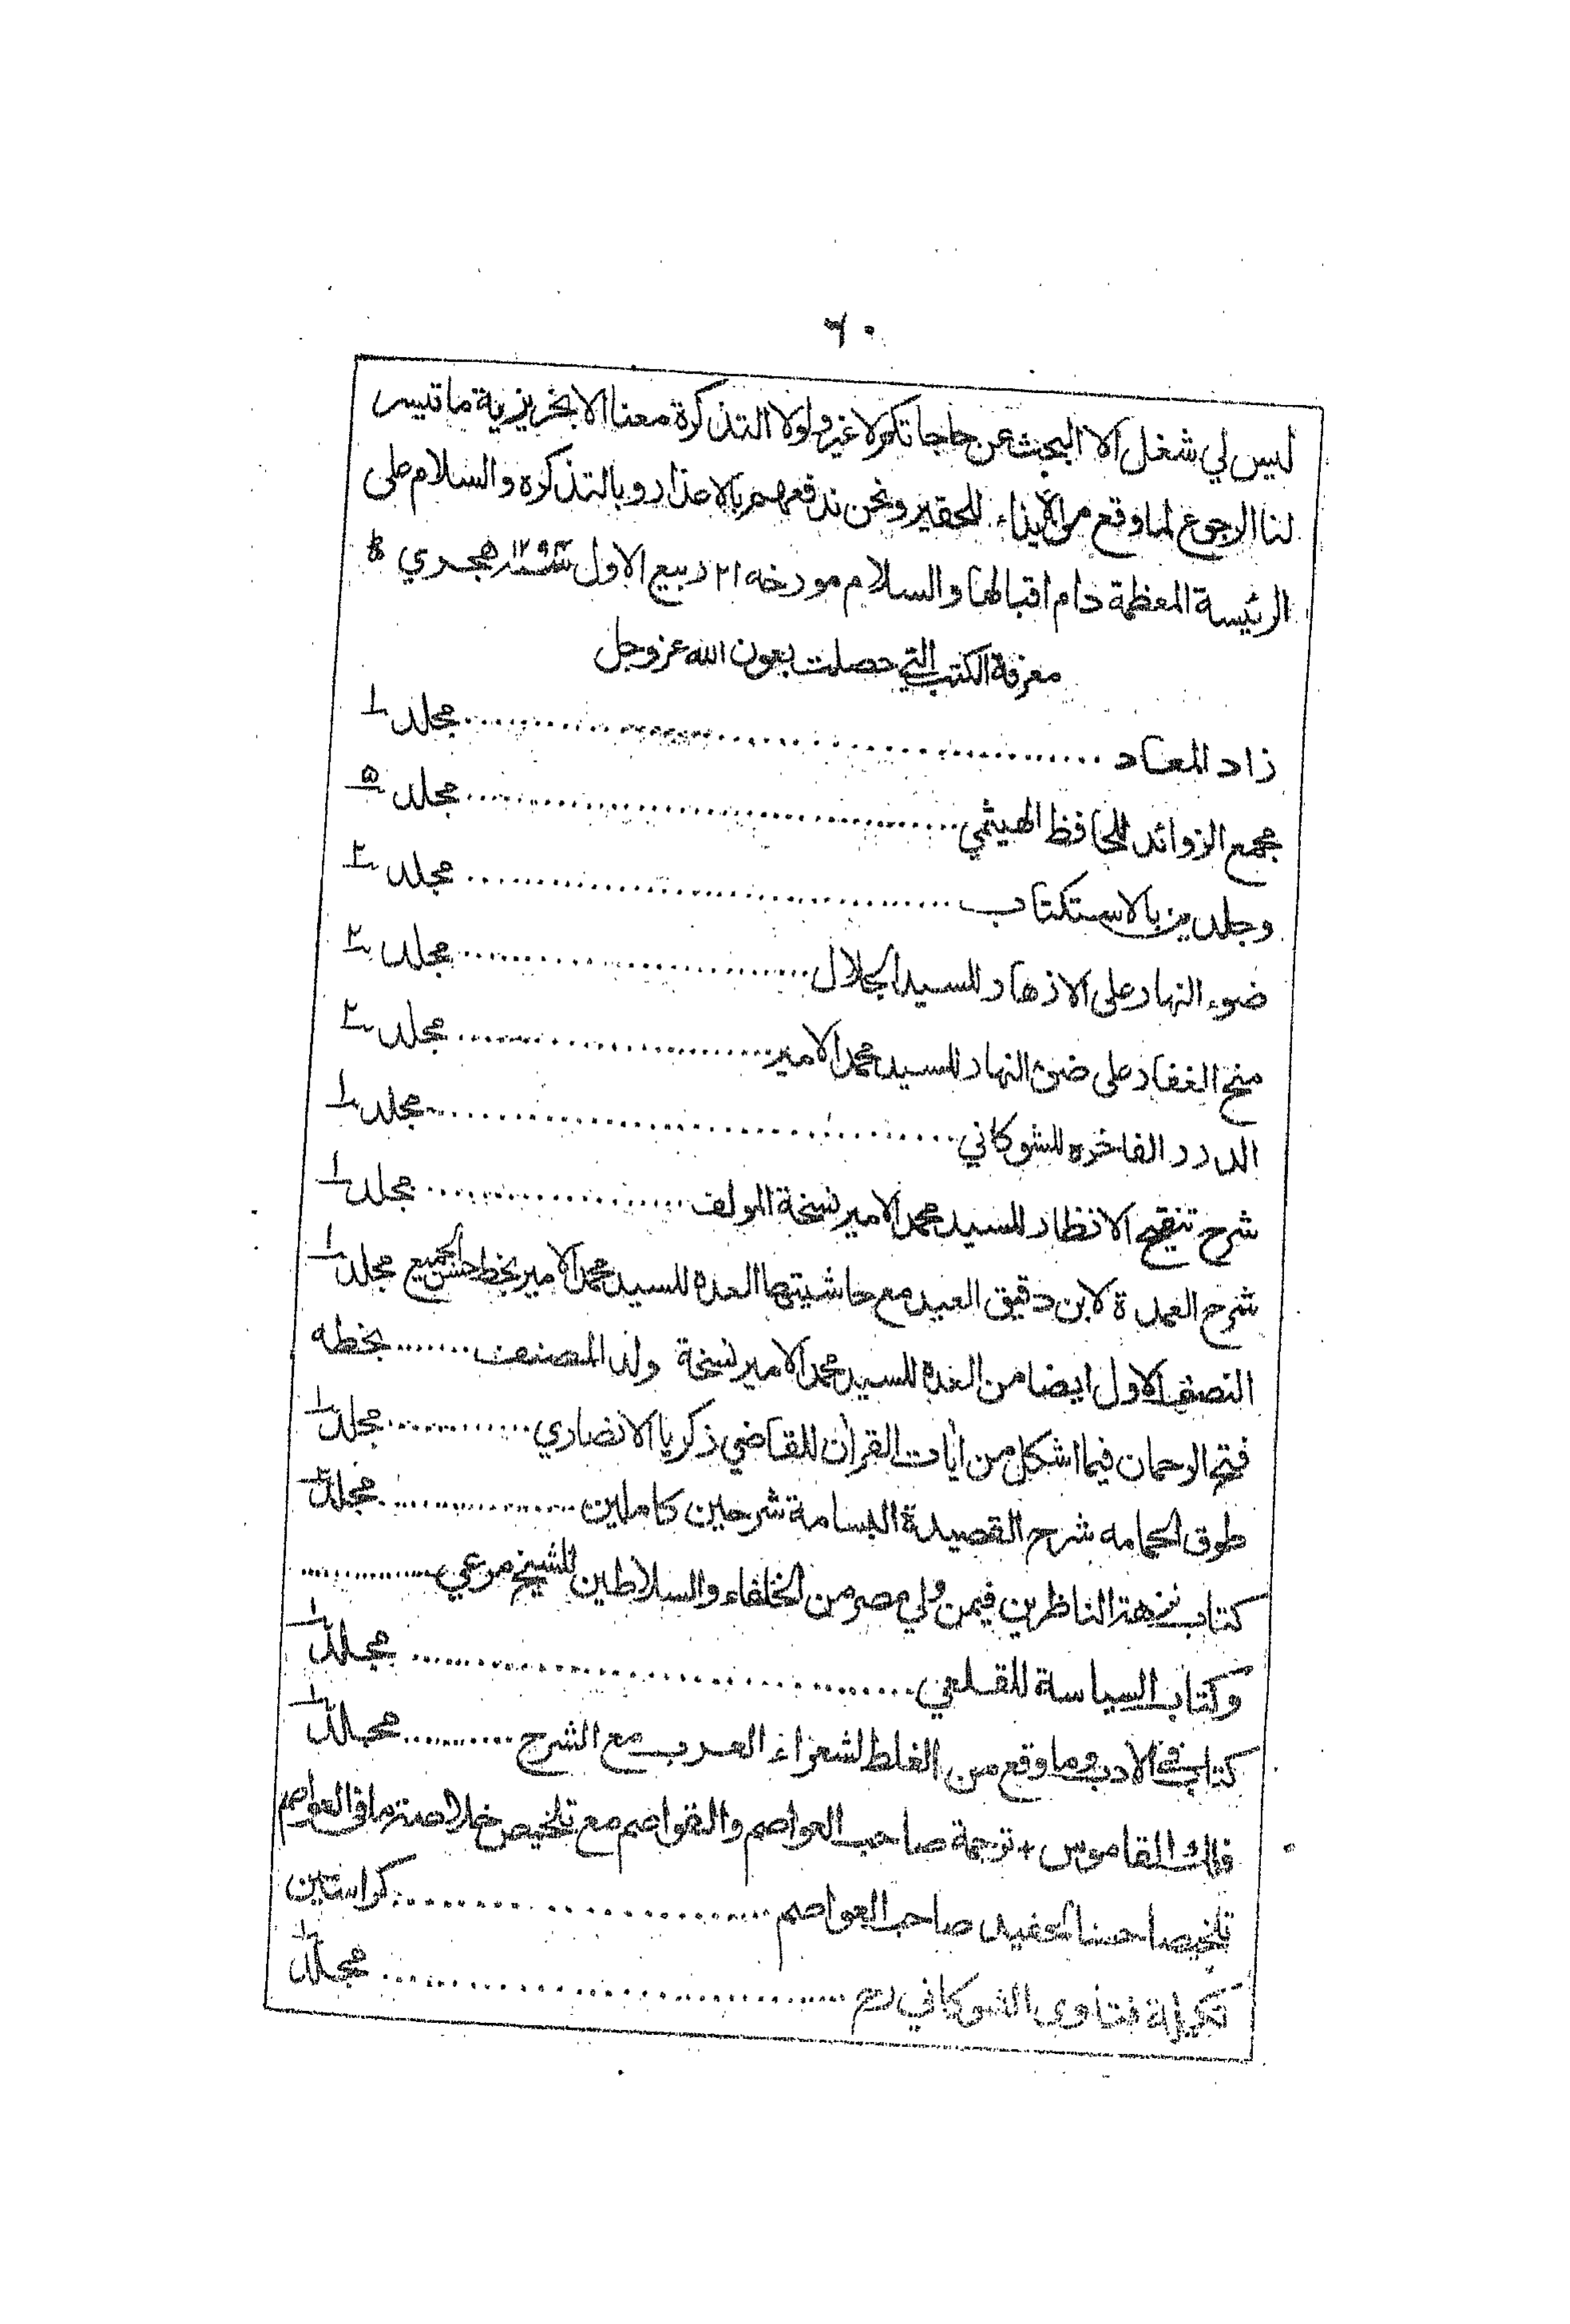 ٦٠
ليس لي شغل الا البحث عن حاجاتكم لا غير ولولا التذكرة معنا الانجريزية ما تيسر
لنا الرجوع لما وقع من الايذاء للحقير ونحن ندفعهم بالاعذار وبالتذكره والسلام على
الرئيسة المعظمة دام اقبالها والسلام مورخه ٢١ ربيع الاول هجري
معرفة الكتب التي حصلت بعون الله عز وجل
زاد المعاد .......... مجلد ١
مجمع الزوائد للحافظ الهيثمي .......... مجلد ٥
وجلدين بالاستكتاب .......... مجلد ٢
ضوء النهار على الازهار للسيد الجلال .......... مجلد ٢
منح الغفار على ضوء النهار للسيد محمد الامير .......... مجلد ٢
الدرر الفاخره للشوكاني .......... مجلد ١
شرح تنقيح الانظار للسيد محمد الامير نسخة المولف .......... مجلد ١
شرح العمدة لابن دقيق العيد مع حاشيتها العدة للسيد محمد الامير بخط حسن الجميع مجلد ١
النصف الاول ايضا من العدة للسيد محمد الامير نسخة ولد المصنف ....... بخطه
فتح الرحمان فيما اشكل من أيات القرأن للقاضي زكريا الانصاري .......... مجلد ١
طوق الحمامه شرح القصيدة البسامة شرحين كاملين .......... مجلد ٢
كتاب نزهة الناظرين فيمن ولي مصر من الخلفاء والسلاطين للشيخ مرعي ..........
وكتاب السياسة للقلعي .......... مجلد ١
كتاب في الادب وما وقع من الغلط لشعراء العرب مع الشرح .......... مجلد ١
فلك القاموس + ترجمة صاحب العواصم والقواصم مع تلخيص خلاصة ما في العواصم
تلخيصا حسنا لحفيد صاحب العواصم .......... كراستين
تكميلة فتاوى الشوكاني رح .......... مجلد ١